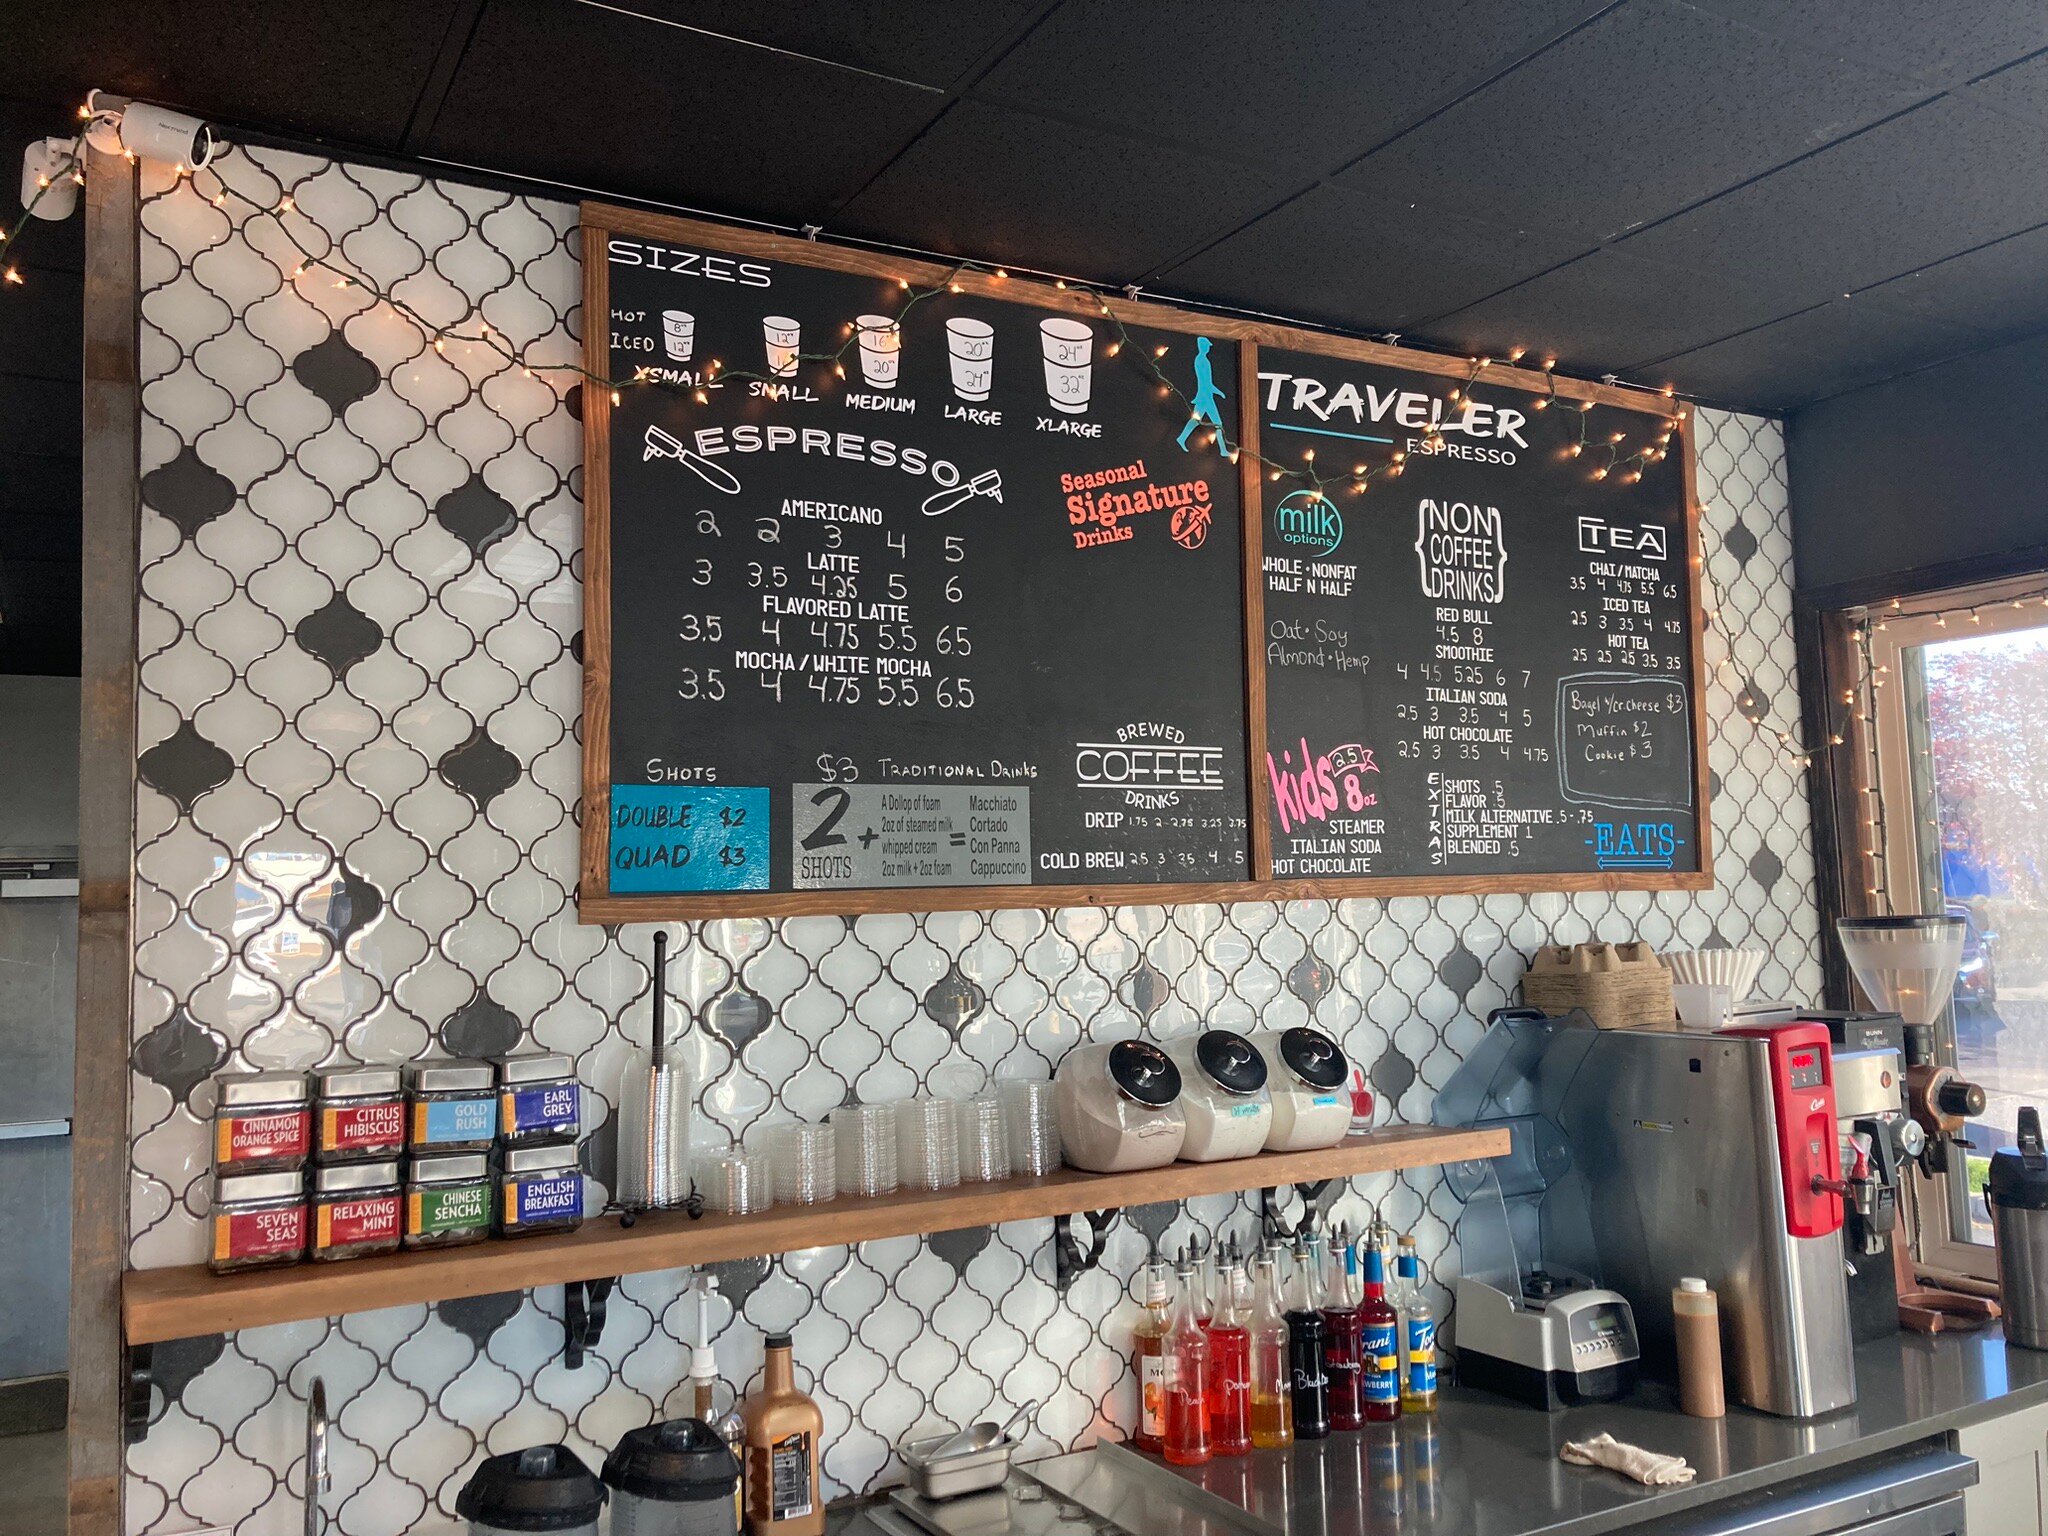 SIZES
HOT 8oz 12oz 16oz 20oz 24oz
ICED 12oz 20oz 24oz 32oz
XSMALL SMALL MEDIUM LARGE XLARGE
ESPRESSO
AMERICANO
2 2 3 4 5
LATTE
3 3.5 4.25 5 6
FLAVORED LATTE
3.5 4 4.75 5.5 6.5
MOCHA / WHITE MOCHA
3.5 4 4.75 5.5 6.5
Seasonal
Signature
Drinks
SHOTS
DOUBLE $2
QUAD $3
$3 TRADITIONAL DRINKS
2 SHOTS +
A Dollop of foam = Macchiato
2oz of steamed milk Cortado
whipped cream Con Panna
2oz milk + 2oz foam Cappuccino
BREWED
COFFEE
DRINKS
DRIP 1.75 2 2.75 3.25 3.75
COLD BREW 2.5 3 3.5 4 5
TRAVELER
ESPRESSO
milk
options
WHOLE • NONFAT
HALF N HALF
Oat • Soy
Almond • Hemp
kids 2.5
8oz
STEAMER
ITALIAN SODA
HOT CHOCOLATE
{NON
COFFEE
DRINKS}
RED BULL
4.5 8
SMOOTHIE
4 4.5 5.25 6 7
ITALIAN SODA
2.5 3 3.5 4 5
HOT CHOCOLATE
2.5 3 3.5 4 4.75
EXTRAS
SHOTS .5
FLAVOR .5
MILK ALTERNATIVE .5-.75
SUPPLEMENT 1
BLENDED .5
TEA
CHAI / MATCHA
3.5 4 4.75 5.5 6.5
ICED TEA
2.5 3 3.5 4 4.75
HOT TEA
2.5 2.5 2.5 3.5 3.5
Bagel w/cr.cheese $3
Muffin $2
Cookie $3
-EATS-
CINNAMON
ORANGE SPICE
CITRUS
HIBISCUS
GOLD
RUSH
EARL
GREY
SEVEN
SEAS
RELAXING
MINT
CHINESE
SENCHA
ENGLISH
BREAKFAST
BUNN
Curtis
Peach